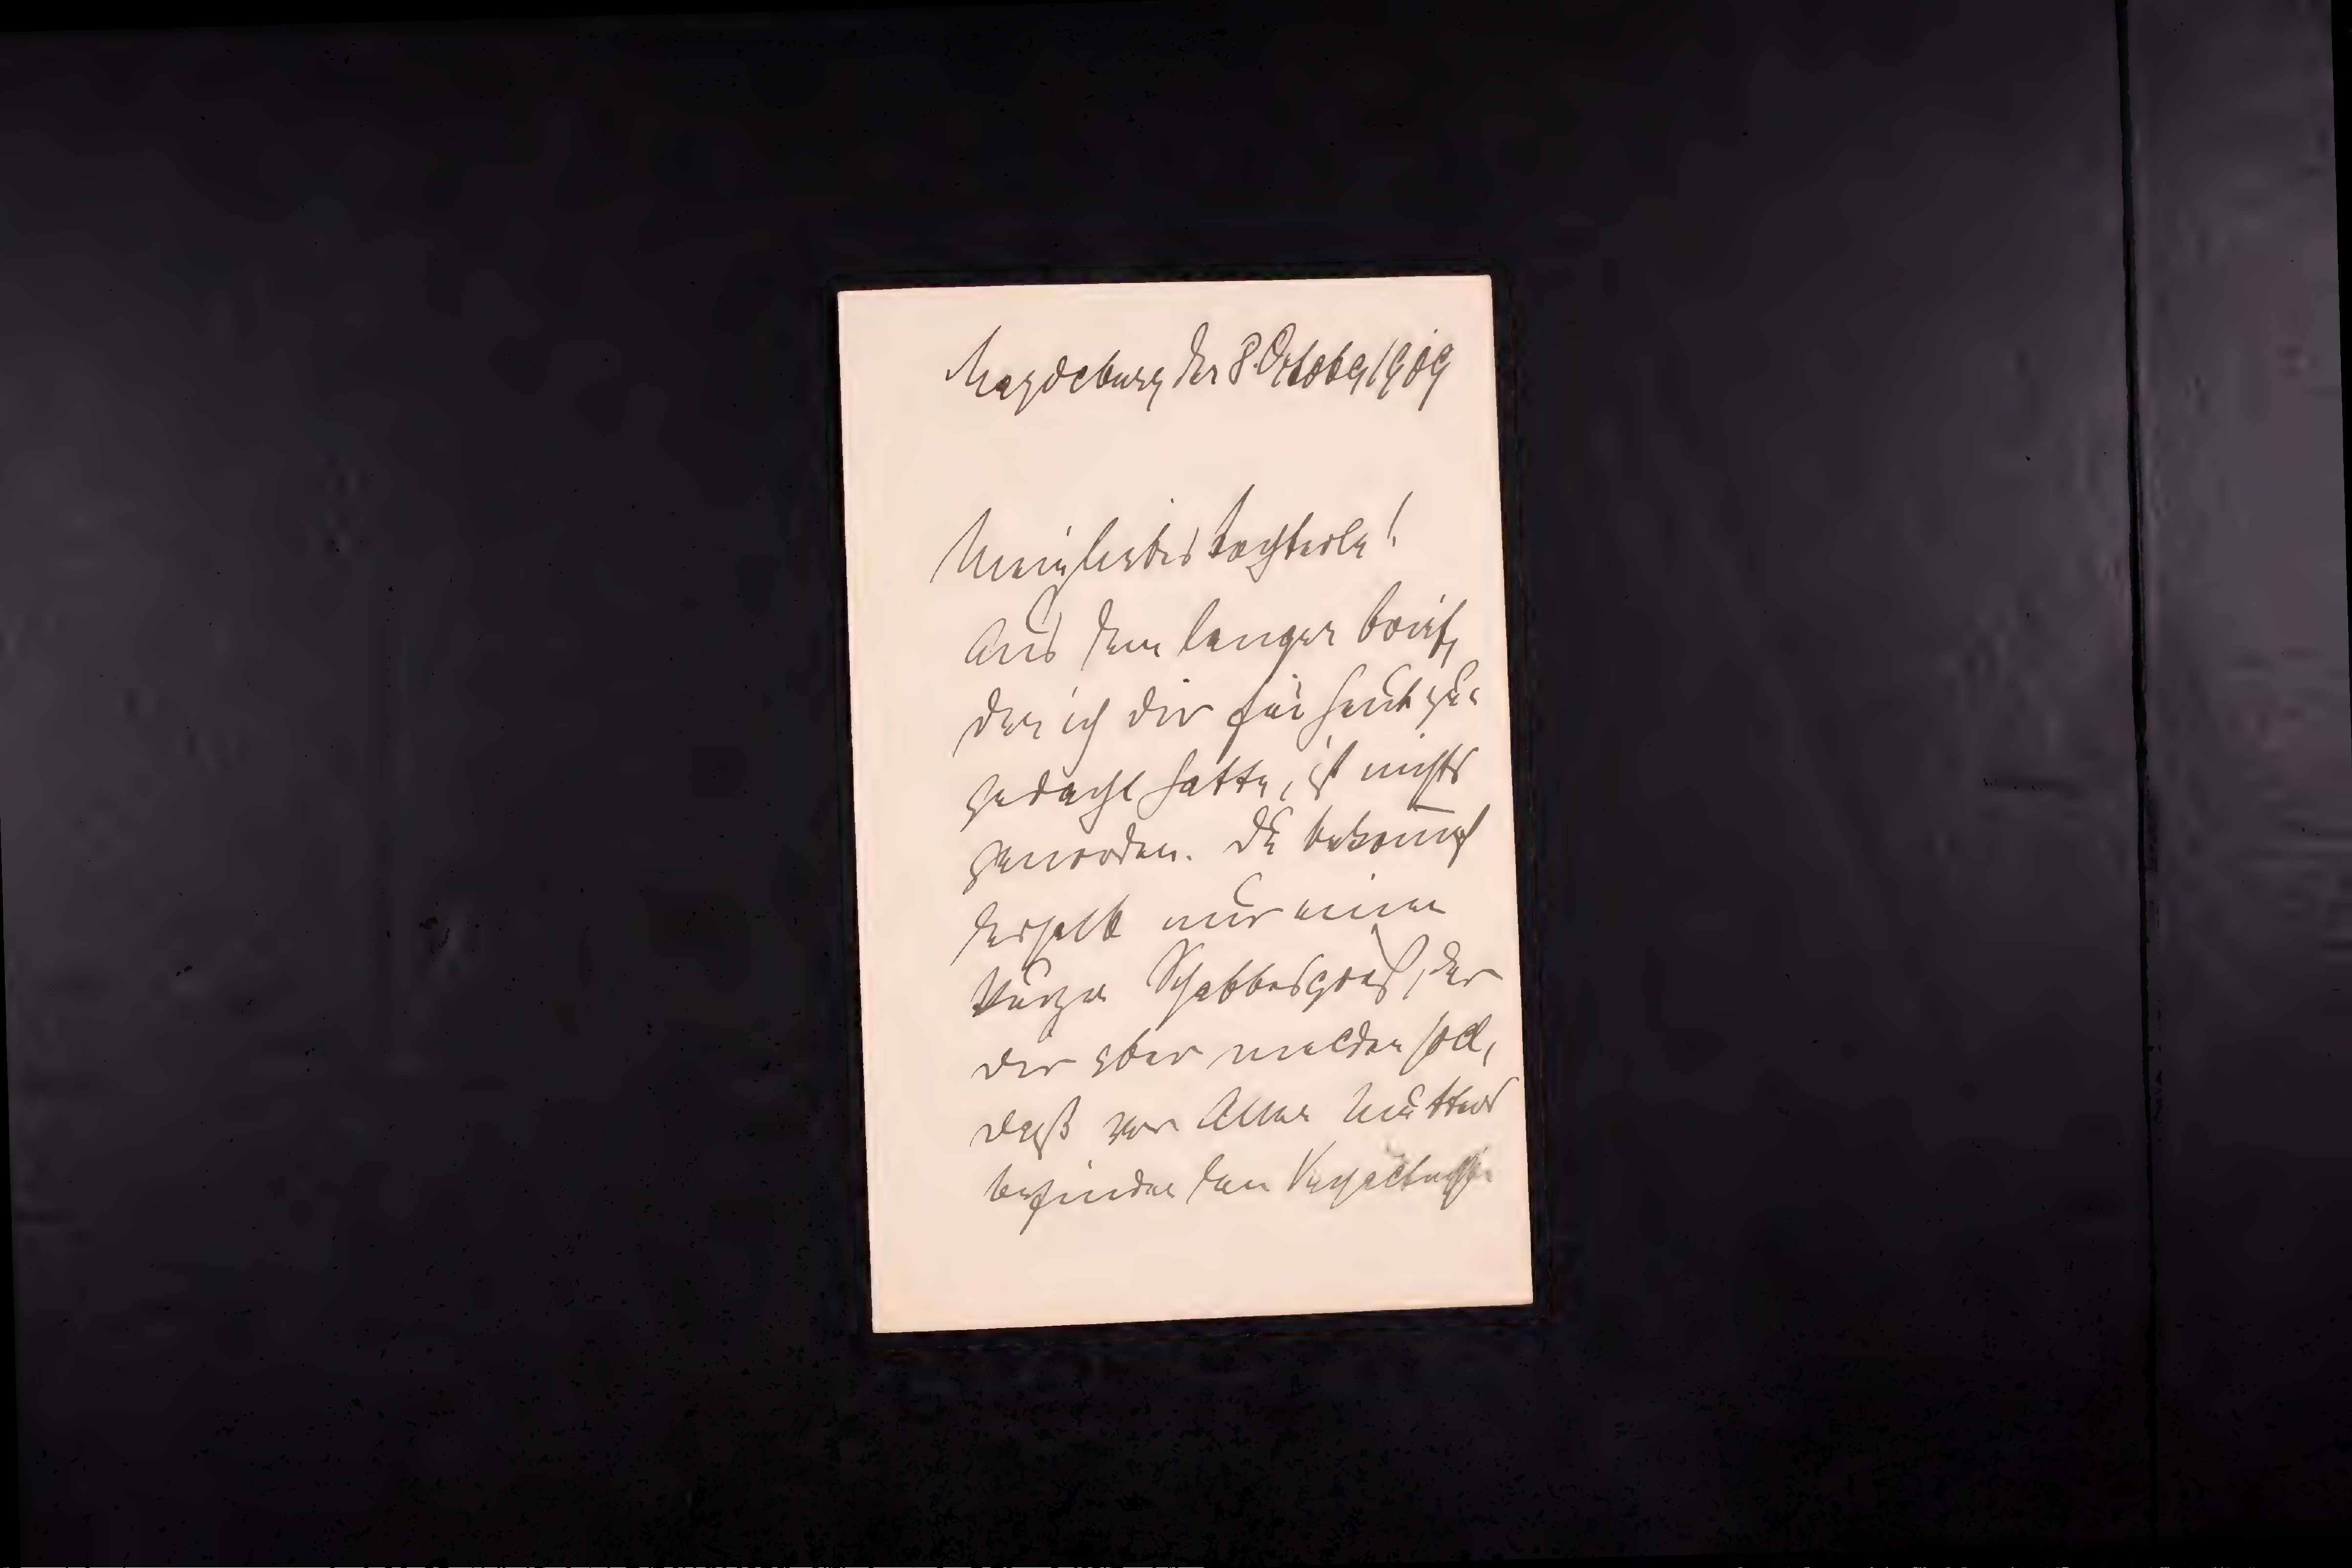 Magdeburg den 8. October 1909
Mein liebes Tochterle!
Aus dem langen Brief,
den ich dir für heut zu=
gedacht hatte, ist nichts
geworden. Du bekomst
deshalb nur einen
kurzen Schabbesgruß, der
dir aber melden soll,
daß vor Allem Mutters
befinden den Verhältnissen